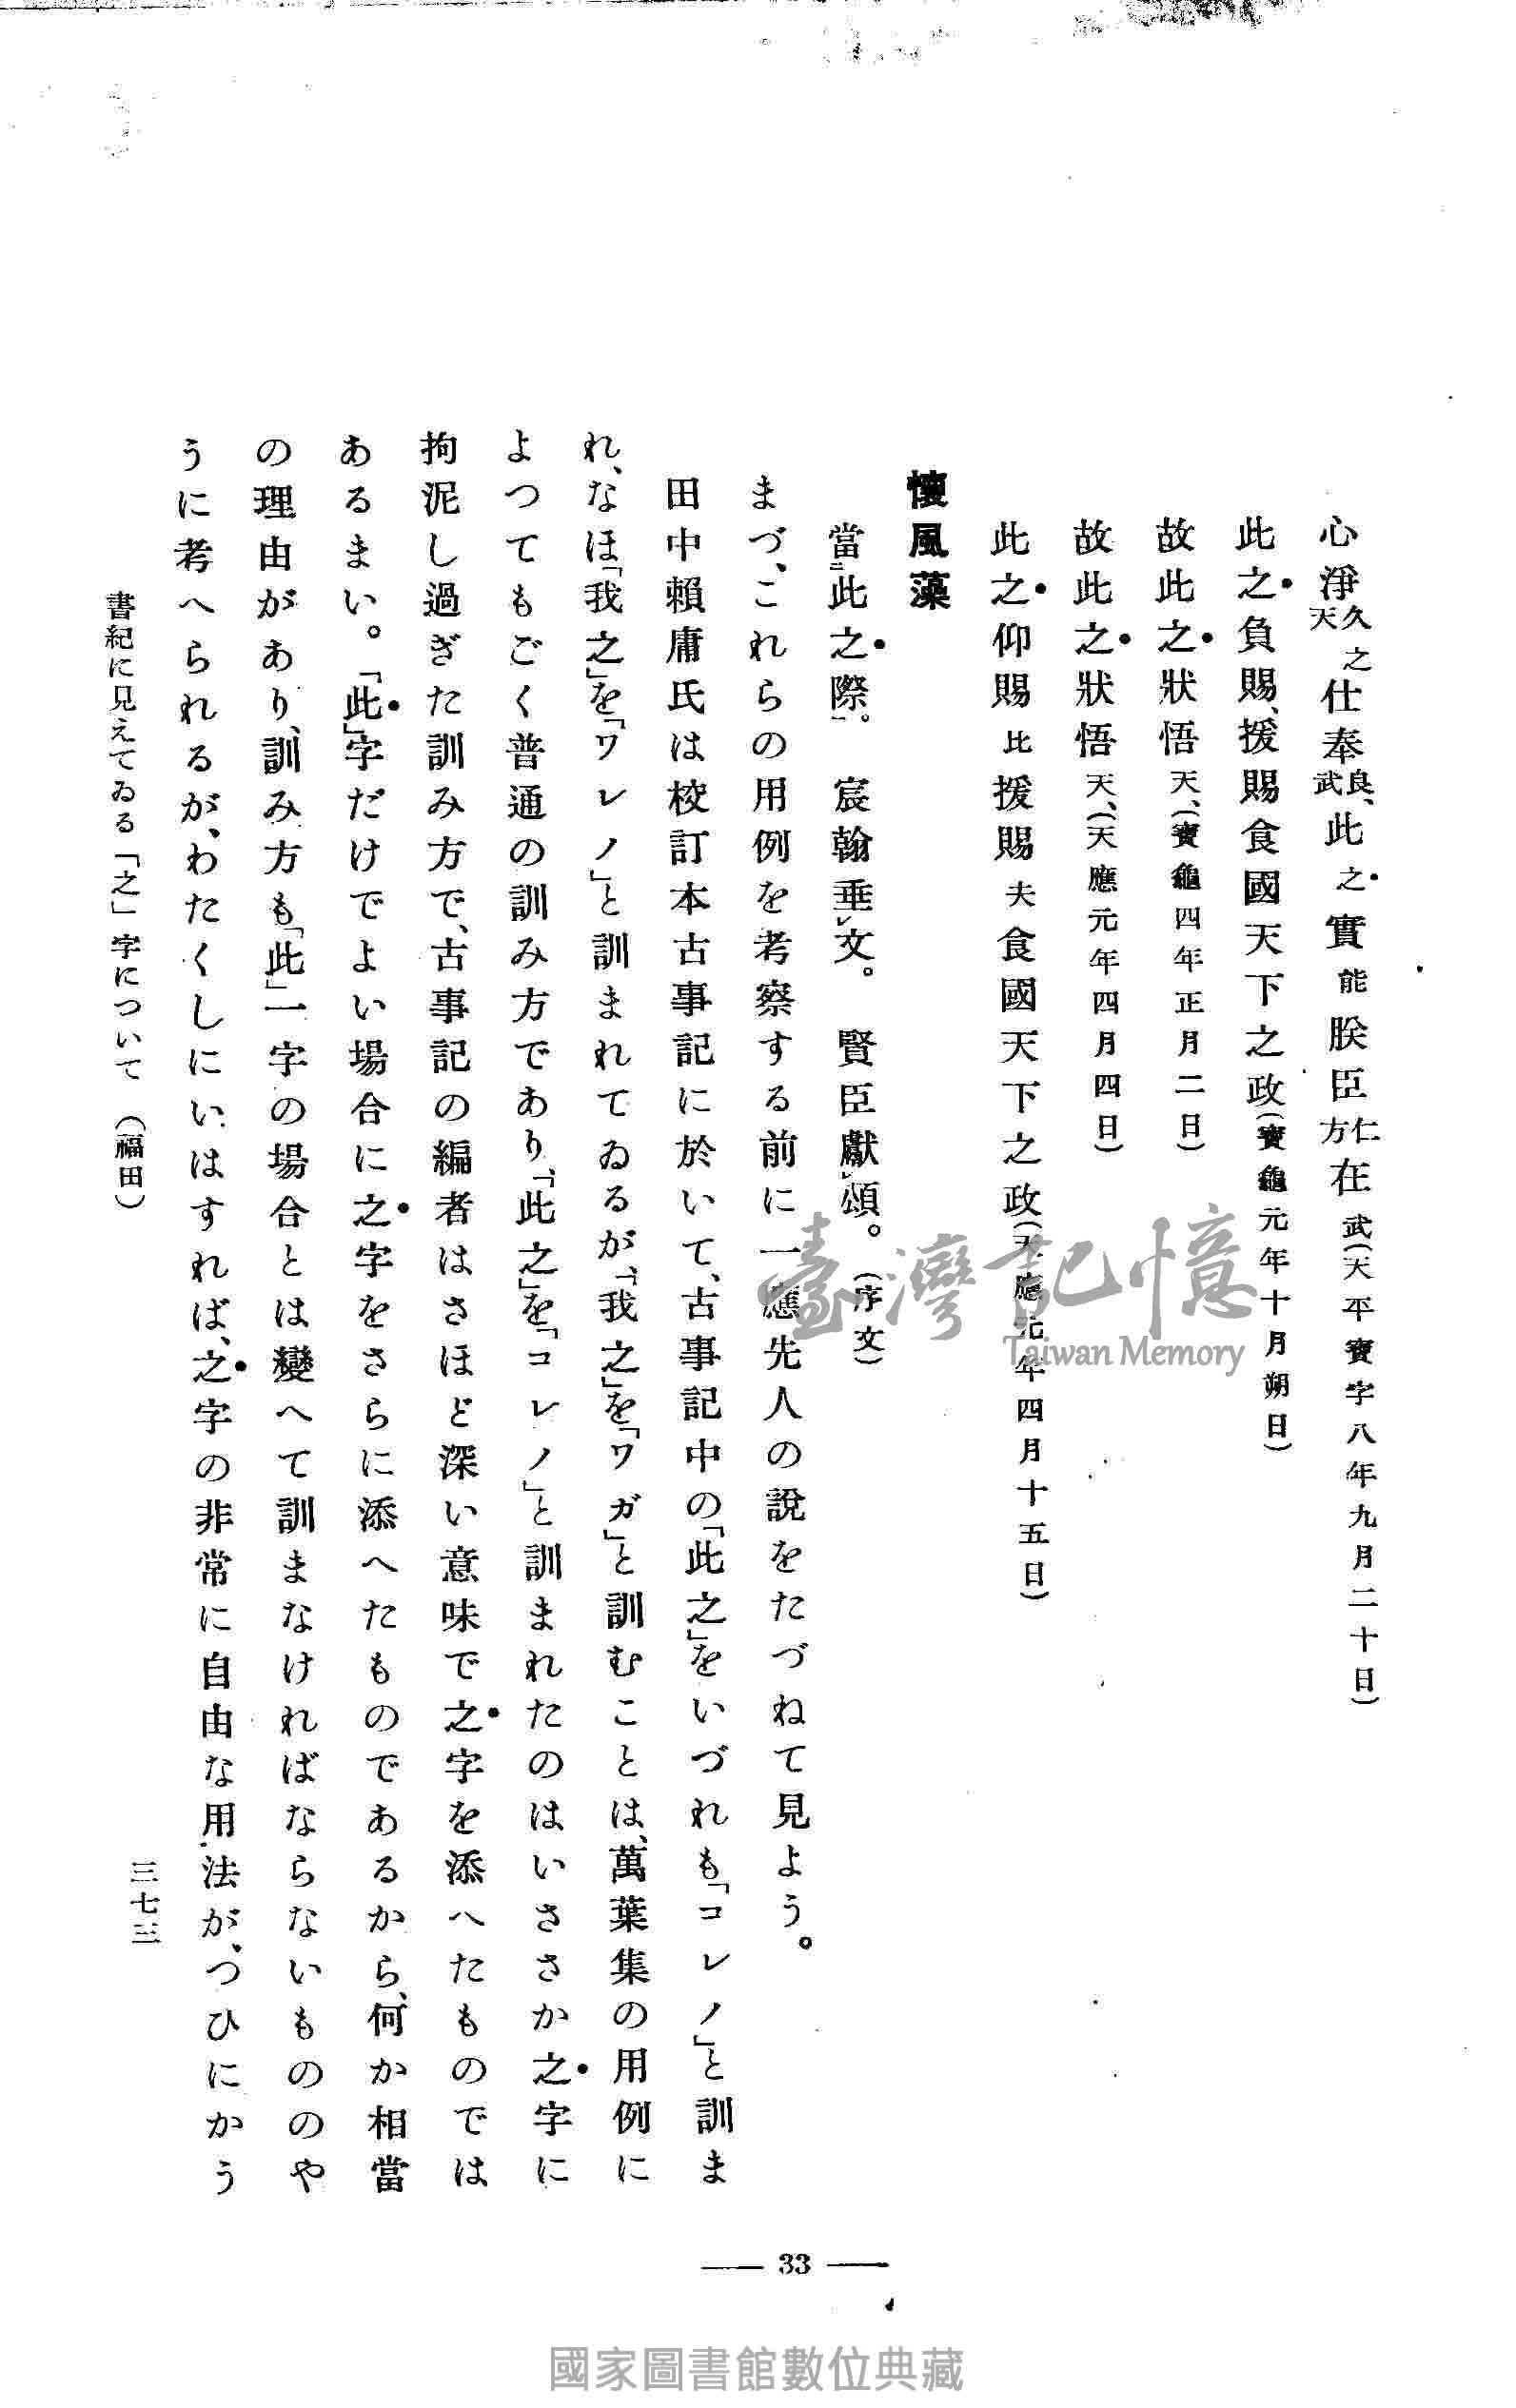 心淨久之天仕奉良武、此之實能朕臣仁方在武(天平寶字八年九月二十日)
此之負賜、援賜食國天下之政(寶龜元年十月朔日)
故此之狀悟天、(寶龜四年正月二日)
故此之狀悟天、(天應元年四月四日)
此之仰賜比援賜夫食國天下之政(天應元年四月十五日)
懷風藻
當二此之際一。　宸翰垂レ文。　賢臣獻レ頌。(序文)
まづ、これらの用例を考察する前に一應先人の說をたづねて見よう。
田中賴庸氏は校訂本古事記に於いて、古事記中の「此之」をいづれも「コレノ」と訓ま
れ、なほ「我之」を「ワレノ」と訓まれてゐるが、「我之」を「ワガ」と訓むことは、萬葉集の用例に
よつてもごく普通の訓み方であり、「此之」を「コレノ」と訓まれたのはいささか之字に
拘泥し過ぎた訓み方で、古事記の編者はさほど深い意味で之字を添へたものでは
あるまい。「此」字だけでよい場合に之字をさらに添へたものであるから、何か相當
の理由があり、訓み方も「此」一字の場合とは變へて訓まなければならないもののや
うに考へられるが、わたくしにいはすれば、之字の非常に自由な用法が、つひにかう
書紀に見えてゐる「之」字について　(福田)
三七三
— 33 —
臺灣記憶
Taiwan Memory
國家圖書館數位典藏